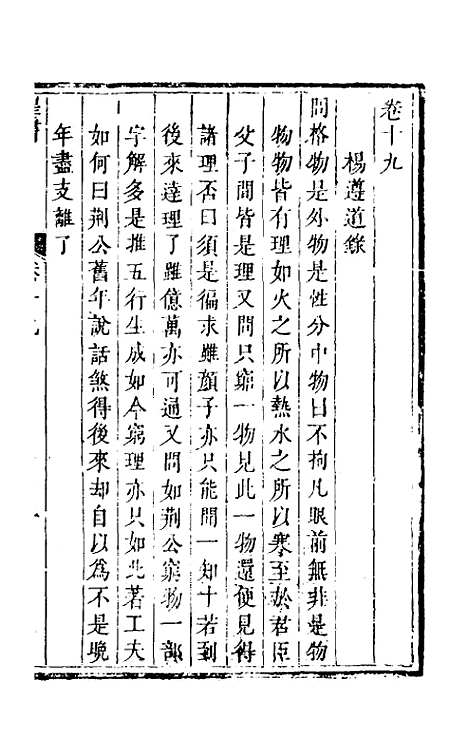 卷十九
楊遵道錄
問格物是外物是性分中物曰不拘凡眼前無非是物
物物皆有理如火之所以熱水之所以寒至於君臣
父子間皆是理又問只窮一物見此一物還便見得
諸理否曰須是徧求雖顏子亦只能聞一知十若到
後來達理了雖億萬亦可通又問如荆公窮物一部
字解多是推五行生成如今窮理亦只如此著工夫
如何曰荆公舊年說話煞得後來却自以為不是晚
年盡支離了
卷十九